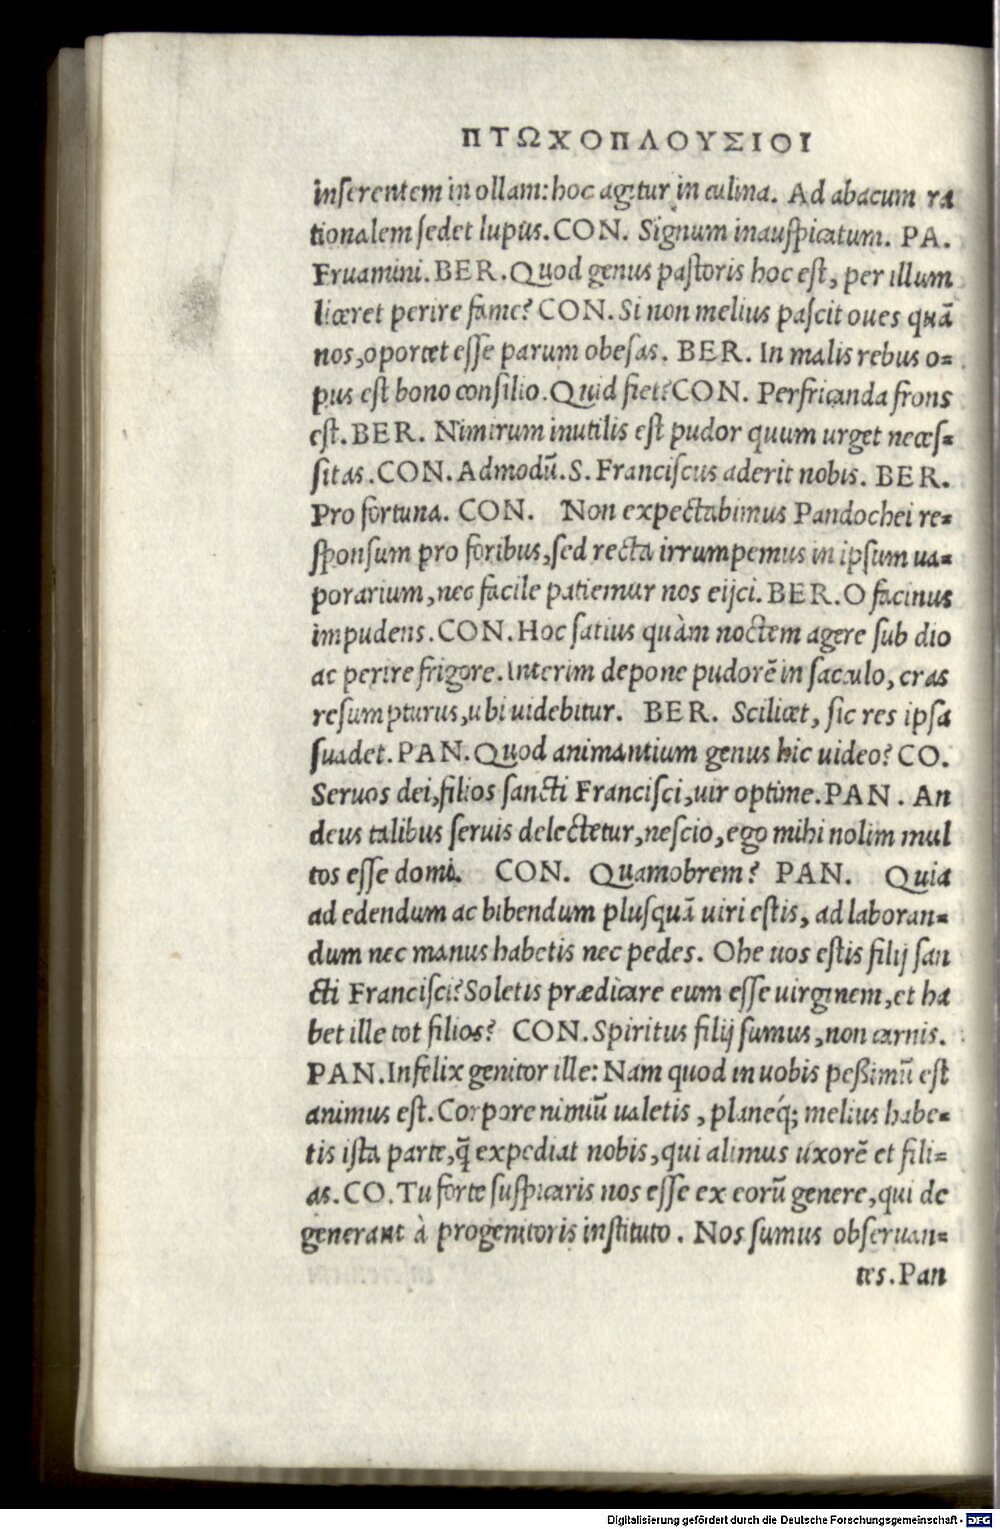 ΠΤΩΧΟΠΛΟΥΣΙΟΙ
inserentem in ollam: hoc agitur in culina. Ad abacum ra
tionalem sedet lupus. CON. Signum inauspicatum. PA.
Fruamini. BER. Quod genus pastoris hoc est, per illum
liceret perire fame? CON. Si non melius pascit oues quā
nos, oportet esse parum obesas. BER. In malis rebus o-
pus est bono consilio. Quid fiet? CON. Perfricanda frons
est. BER. Nimirum inutilis est pudor quum urget neces-
sitas. CON. Admodū. S. Franciscus aderit nobis. BER.
Pro fortuna. CON. Non expectabimus Pandochei re-
sponsum pro foribus, sed recta irrumpemus in ipsum ua-
porarium, nec facile patiemur nos eijci. BER. O facinus
impudens. CON. Hoc satius quàm noctem agere sub dio
ac perire frigore. Interim depone pudorē in sacculo, cras
resumpturus, ubi uidebitur. BER. Scilicet, sic res ipsa
suadet. PAN. Quod animantium genus hic uideo? CO.
Seruos dei, filios sancti Francisci, uir optime. PAN. An
deus talibus seruis delectetur, nescio, ego mihi nolim mul
tos esse domi. CON. Quamobrem? PAN. Quia
ad edendum ac bibendum plusquā uiri estis, ad laboran-
dum nec manus habetis nec pedes. Ohe uos estis filij san
cti Francisci? Soletis prædicare eum esse uirginem, et ha
bet ille tot filios? CON. Spiritus filij sumus, non carnis.
PAN. Infelix genitor ille: Nam quod in uobis peßimū est
animus est. Corpore nimiū ualetis, planeq́; melius habe-
tis ista parte, q̄ expediat nobis, qui alimus uxorē et fili-
as. CO. Tu forte suspicaris nos esse ex eorū genere, qui de
generant à progenitoris instituto. Nos sumus obseruan-
tes. Pan
Digitalisierung gefördert durch die Deutsche Forschungsgemeinschaft - DFG